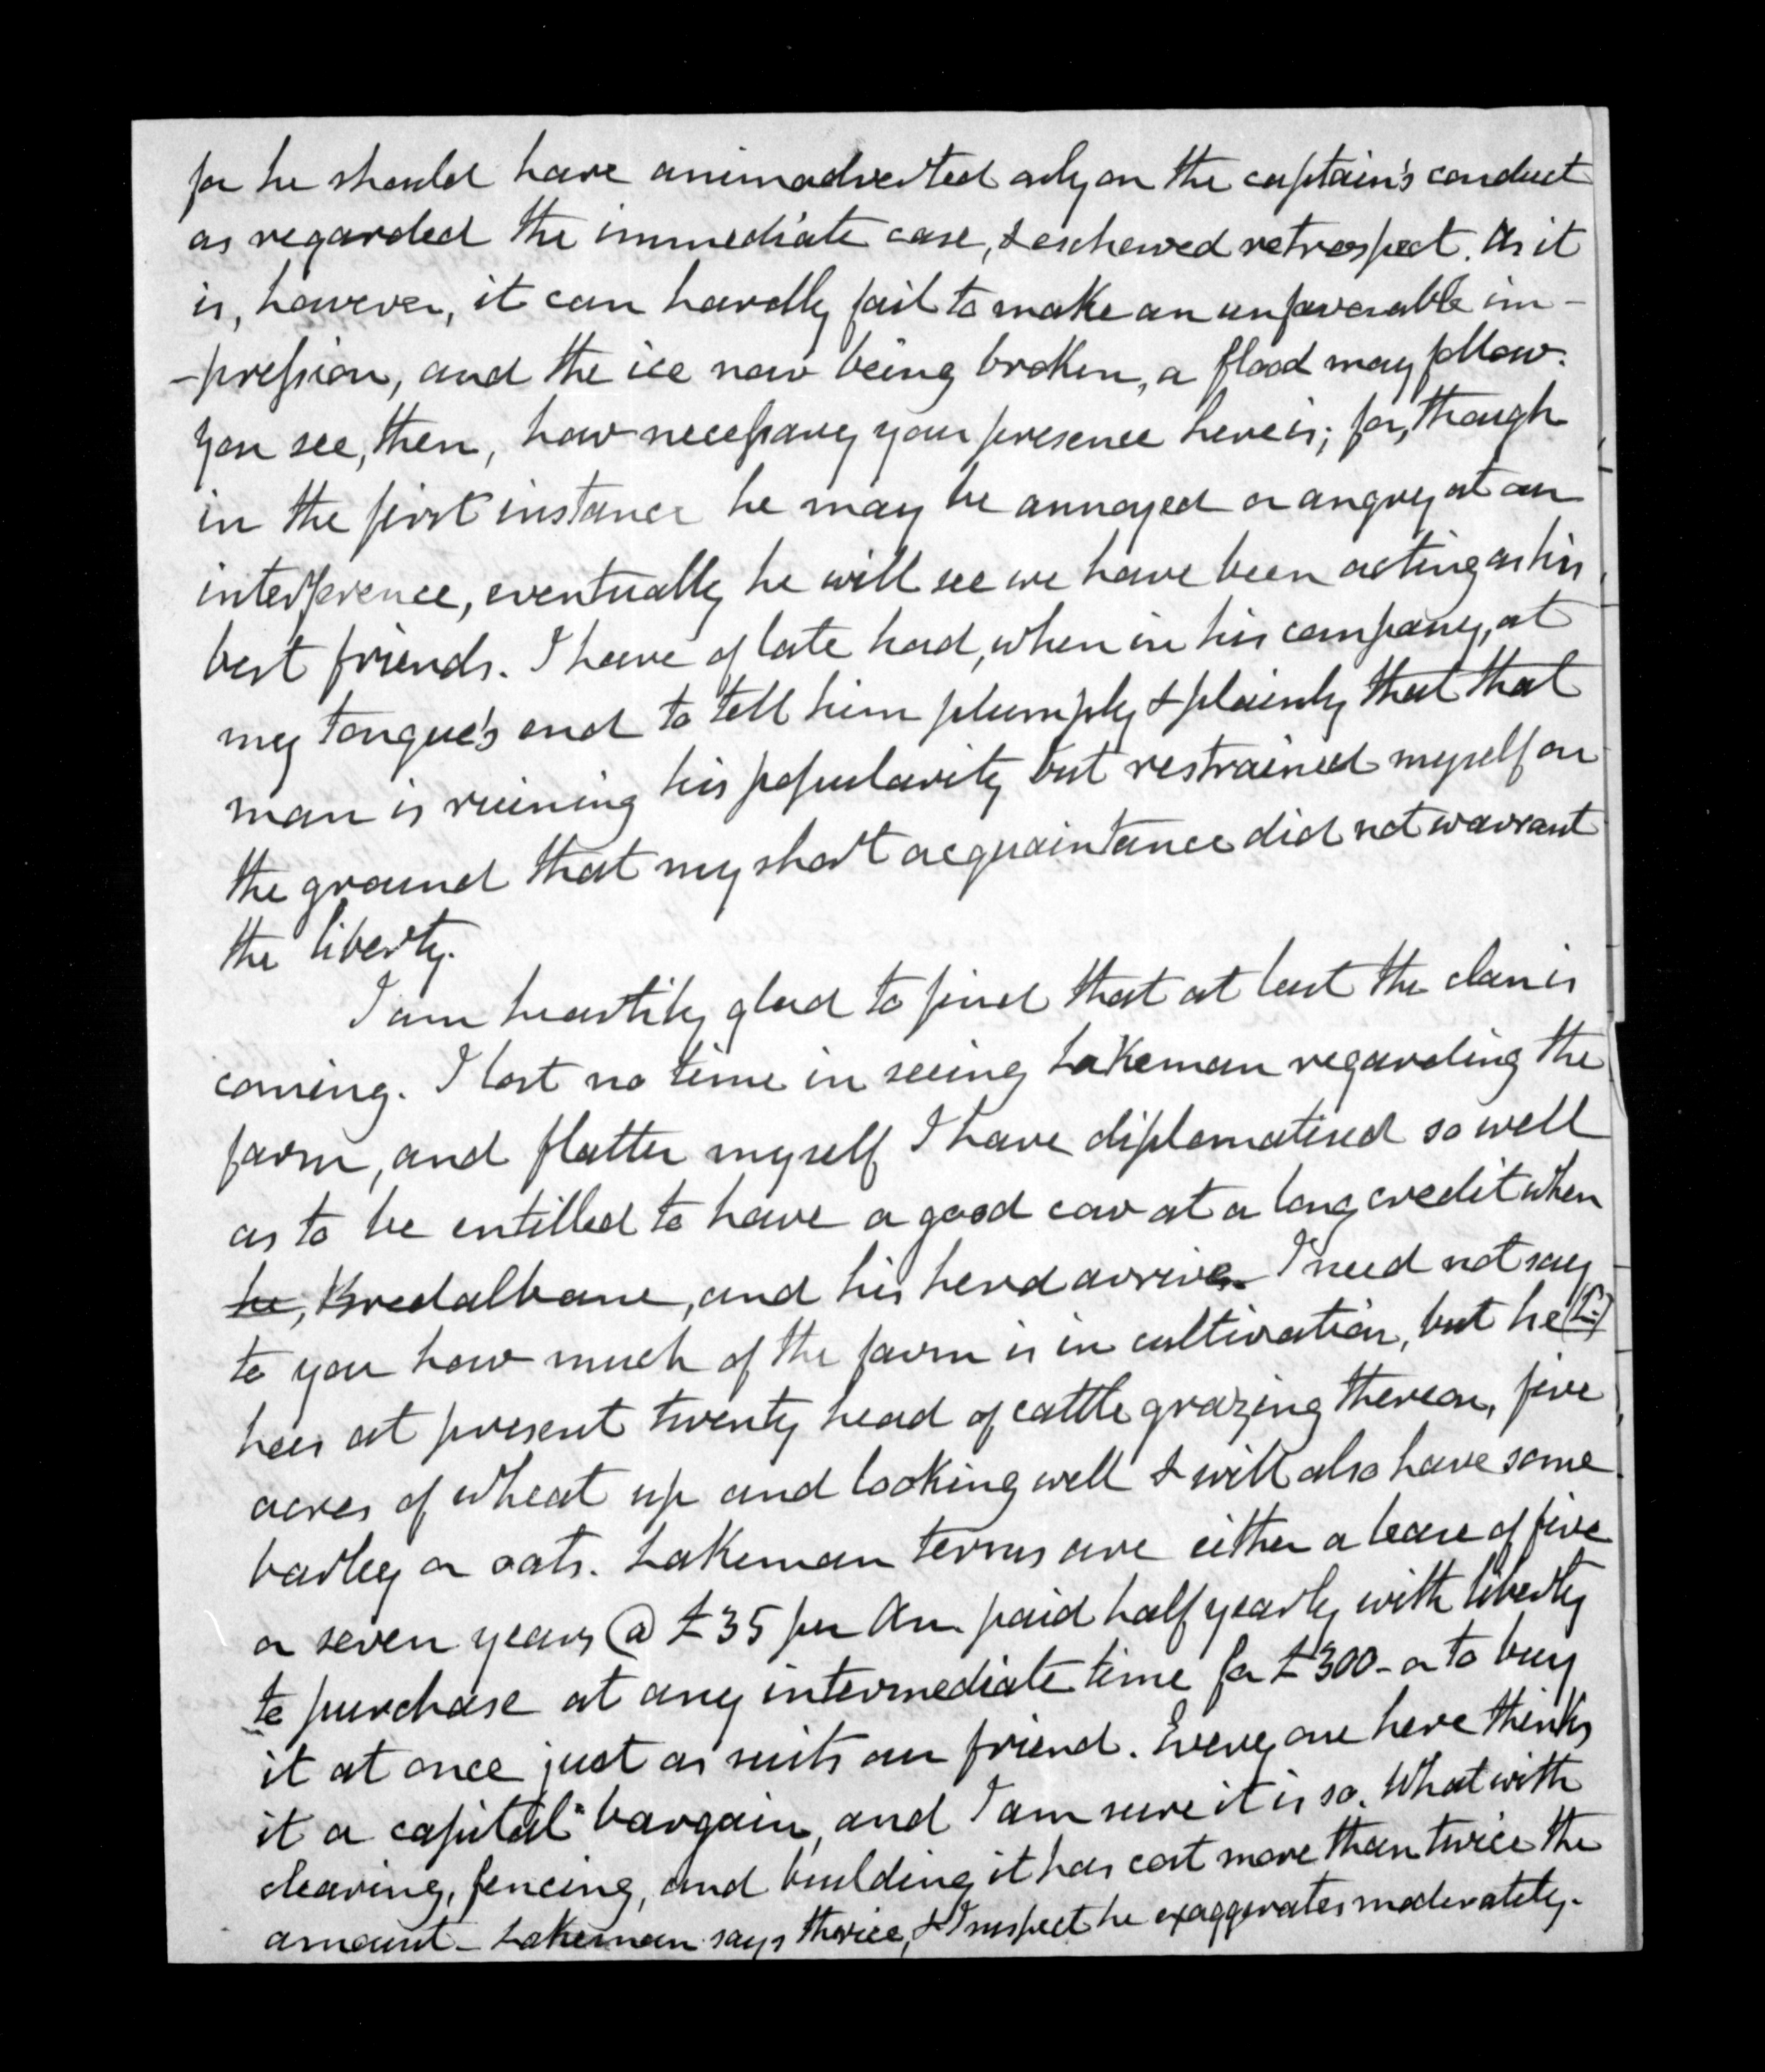 for he should have animadverted only on the captain's conduct
as regarded the immediate case, & eschewed retrospect. As it
is, however, it can hardly fail to make an unfavorable im-
-pression, and the ice now being broken, a flood may follow.
You see, then, how necessary your presence here is; for, though
in the first instance he may be annoyed or angry at our
interference, eventually he will see we have been acting as his
best friends. I have of late had, when in his company, at
my tongue's end to tell him plumply & plainly that that
man is ruining his popularity but restrained myself on
the ground that my short acquaintance did not warrant
the liberty.
I am heartily glad to find that at last the clan is
coming. I lost no time in seeing Lakeman regarding the
farm, and flatter myself I have diplomatised so well
as to be entitled to have a good cow at a long credit when
he, Bredalbane, and his herd arrives. I need not say
to you how much of the farm is in cultivation, but he (L.)
has at present twenty head of cattle grazing thereon, five
acres of wheat up and looking well & will also have some
barley or oats. Lakeman terms are either a lease of five
or seven years @ £35 per An. paid half yearly with liberty
to purchase at any intermediate time for £300 - or to buy
it at once just as suits our friend. Every one here thinks
it a capital bargain, and I am sure it is so. What with
clearing, fencing, and building it has cost more than twice the
amount - Lakeman says thrice, & I suspect he exaggerates moderately.